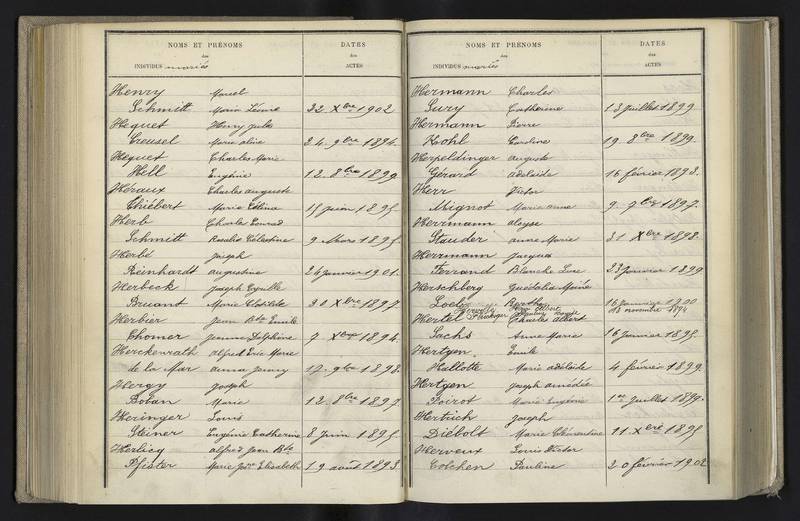 NOMS ET PRÉNOMS
des
INDIVIDUS mariés
DATES
des
ACTES
Henry Marcel
Schmitt Marie Zéma 22 Xbre 1902
Hequet Henry Jules
Creusel Marie Aline 24. 9bre 1894.
Hequet Charles Marie
Hill Eugénie 12. 8bre 1899
Héraux Charles Auguste
Thiébert Marie 15 juin 1895
Herb Charles Conrad
Schmitt Rosalie Célestine 9. Mars 1895.
Herbé Joseph
Reinhardt Augustine 26 janvier 1901.
Herbeck Joseph Cyrille
Bruant Marie Clotilde 30 Xbre 1897
Herbier Jean Bte Emile
Thomer Jeanne Delphine 7 Xbre 1894.
Herckenrath Alfred Eric Marie
de la Mar Anna Jenny 17. 9bre 1898.
Hergy Joseph
Boban Marie 12. 8bre 1897
Heringer Louis
Steiner Eugénie Catherine 8 juin 1895
Herlicq Alfred Jean Bte
Pfister Marie Elisabeth 19 août 1893
NOMS ET PRÉNOMS
des
INDIVIDUS mariés
DATES
des
ACTES
Hermann Charles
Sury Catherine 13 juillet 1899
Hermann Pierre
Krohl Caroline 19. 8bre 1899.
Herpeldinger Auguste
Gérard Adélaïde 16 février 1893.
Herr Victor
Mignot Marie Anne 9. 7bre 1897.
Herrmann Aloyse
Stauder Anne Marie 31 Xbre 1898.
Herrmann Jacques
Ferrand Blanche Lise 23 janvier 1899
Herschberg Marie
Loeb Berthe 16 janvier 1900
18 novembre 1894
Hertel Charles Albert
Sachs Anne Marie 16 janvier 1895.
Hertgen Emile
Hallotte Marie Adélaïde 4 février 1899.
Hertgen Joseph Amédée
Poirot Marie Eugénie 1er juillet 1899.
Hertrich Joseph
Diébolt Marie Clémentine 11 Xbre 1895
Herveux Louis Victor
Colchen Pauline 20 février 1902